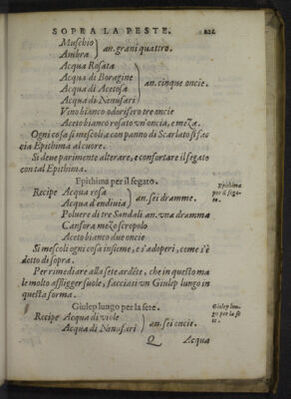 SOPRA LA PESTE. 121
Muschio
Ambra
an. grani quattro.
Acqua Rosata
Acqua di Boragine
Acqua di Acetosa
Acqua di Nenufari
an. cinque oncie.
Vino bianco odorifero tre oncie
Aceto bianco rosato vn'oncia, e meza.
Ogni cosa si mescolia con panno di Scarlato si fac
cia Epithima al cuore.
Si deue parimente alterare, e confortare il fegato
con tal Epithima.
Epithima per il fegato.
Epithima
per il fega-
to.
Recipe Acqua rosa
Acqua d'endiuia
an. sei dramme.
Poluere di tre Sandali an. vna dramma
Canfora mezo scropolo
Aceto bianco due oncie
Si mescoli ogni cosa insieme, e s'adoperi, come s'è
detto di sopra.
Per rimediare alla sete ardēte, che in questo ma
le molto affligger suole, facciasi vn Giulep lungo in
questa forma.
Giulep lungo per la sete.
Giulep lun-
go per la se
te.
Recipe Acqua di viole
Acqua di Nenufari
an. sei oncie.
Q Acqua